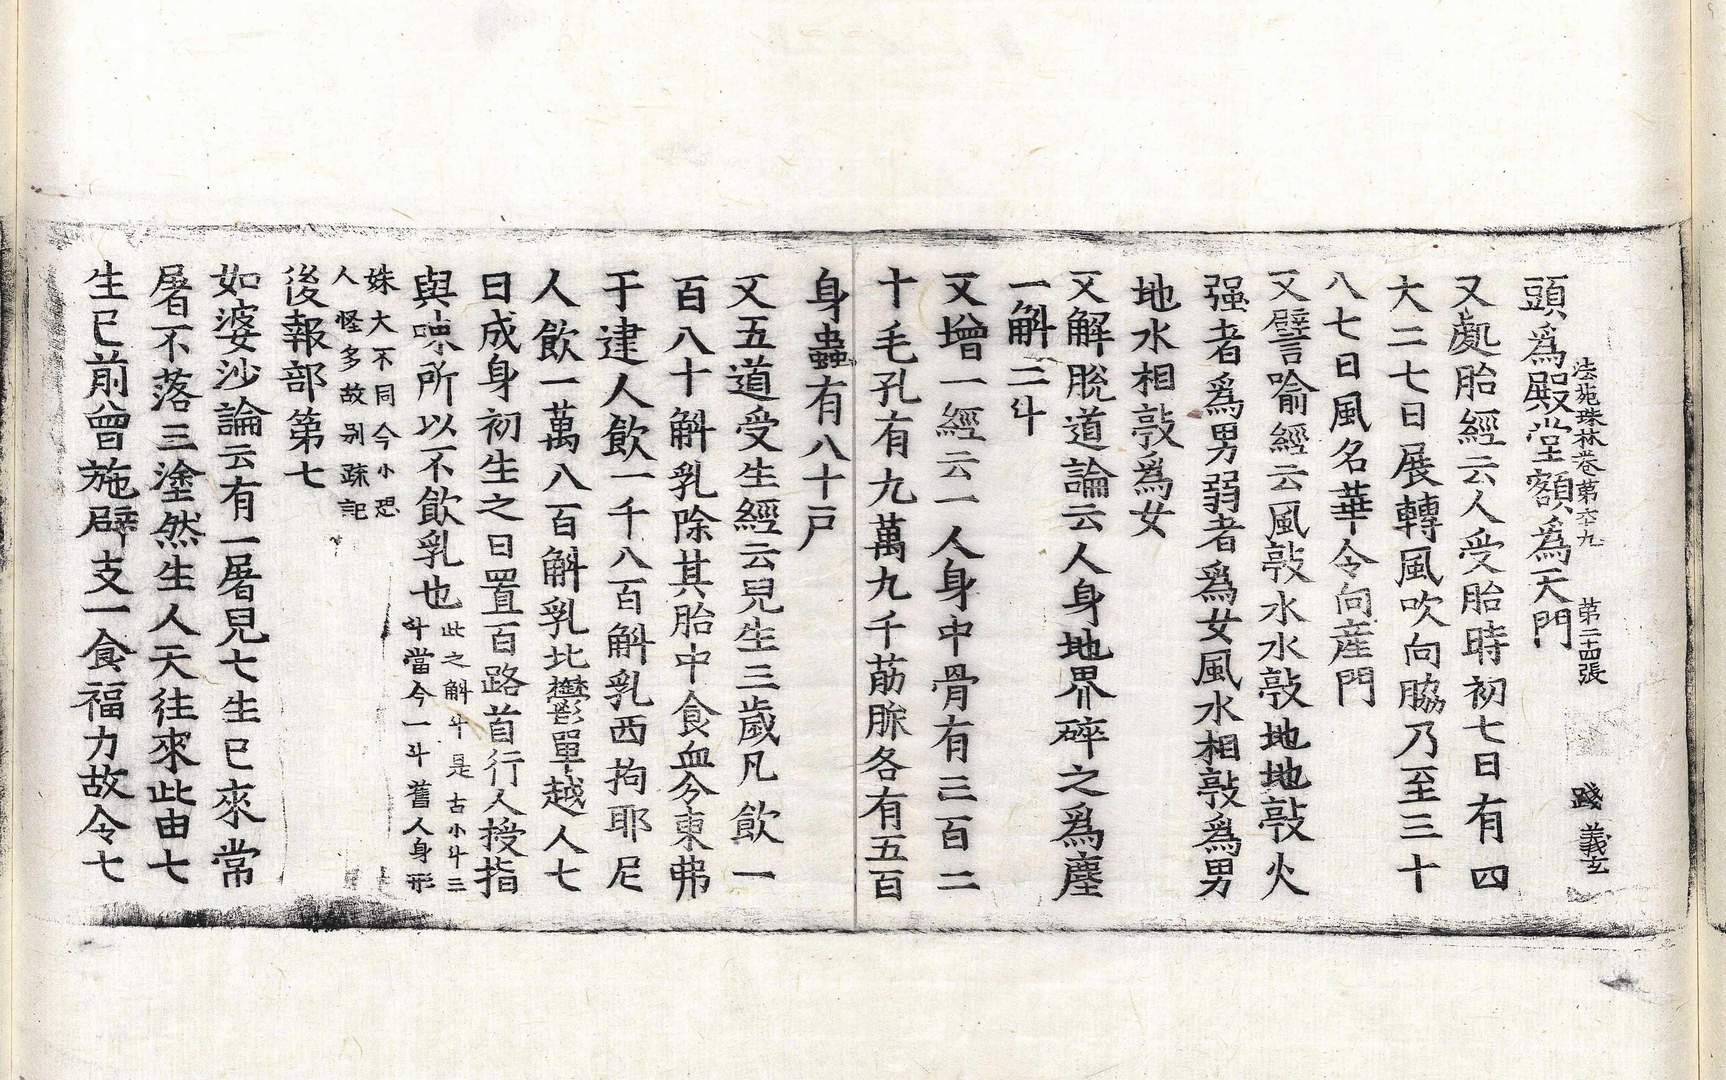 法苑珠林卷第六十九 第二十四張 踐 義玄
頭爲殿堂額爲天門
又處胎經云人受胎時初七日有四
大二七日展轉風吹向脇乃至三十
八七日風名華令向産門
又譬喻經云風敲水水敲地地敲火
强者爲男弱者爲女風水相敲爲男
地水相敲爲女
又解脫道論云人身地界碎之爲塵
一斛二斗
又增一經云一人身中骨有三百二
十毛孔有九萬九千筋脉各有五百
身蟲有八十戶
又五道受生經云兒生三歲凡飲一
百八十斛乳除其胎中食血分東弗
于逮人飲一千八百斛乳西拘耶尼
人飲一萬八百斛乳北鬱單越人七
日成身初生之日置百路首行人授指
與㖒所以不飲乳也此之斛斗是古小斗三
斗當今一斗舊人身形
姝大不同今小恐
人怪多故别疏記
後報部第七
如婆沙論云有一屠見七生已來常
屠不落三塗然生人天往來此由七
生已前曾施辟支一食福力故令七